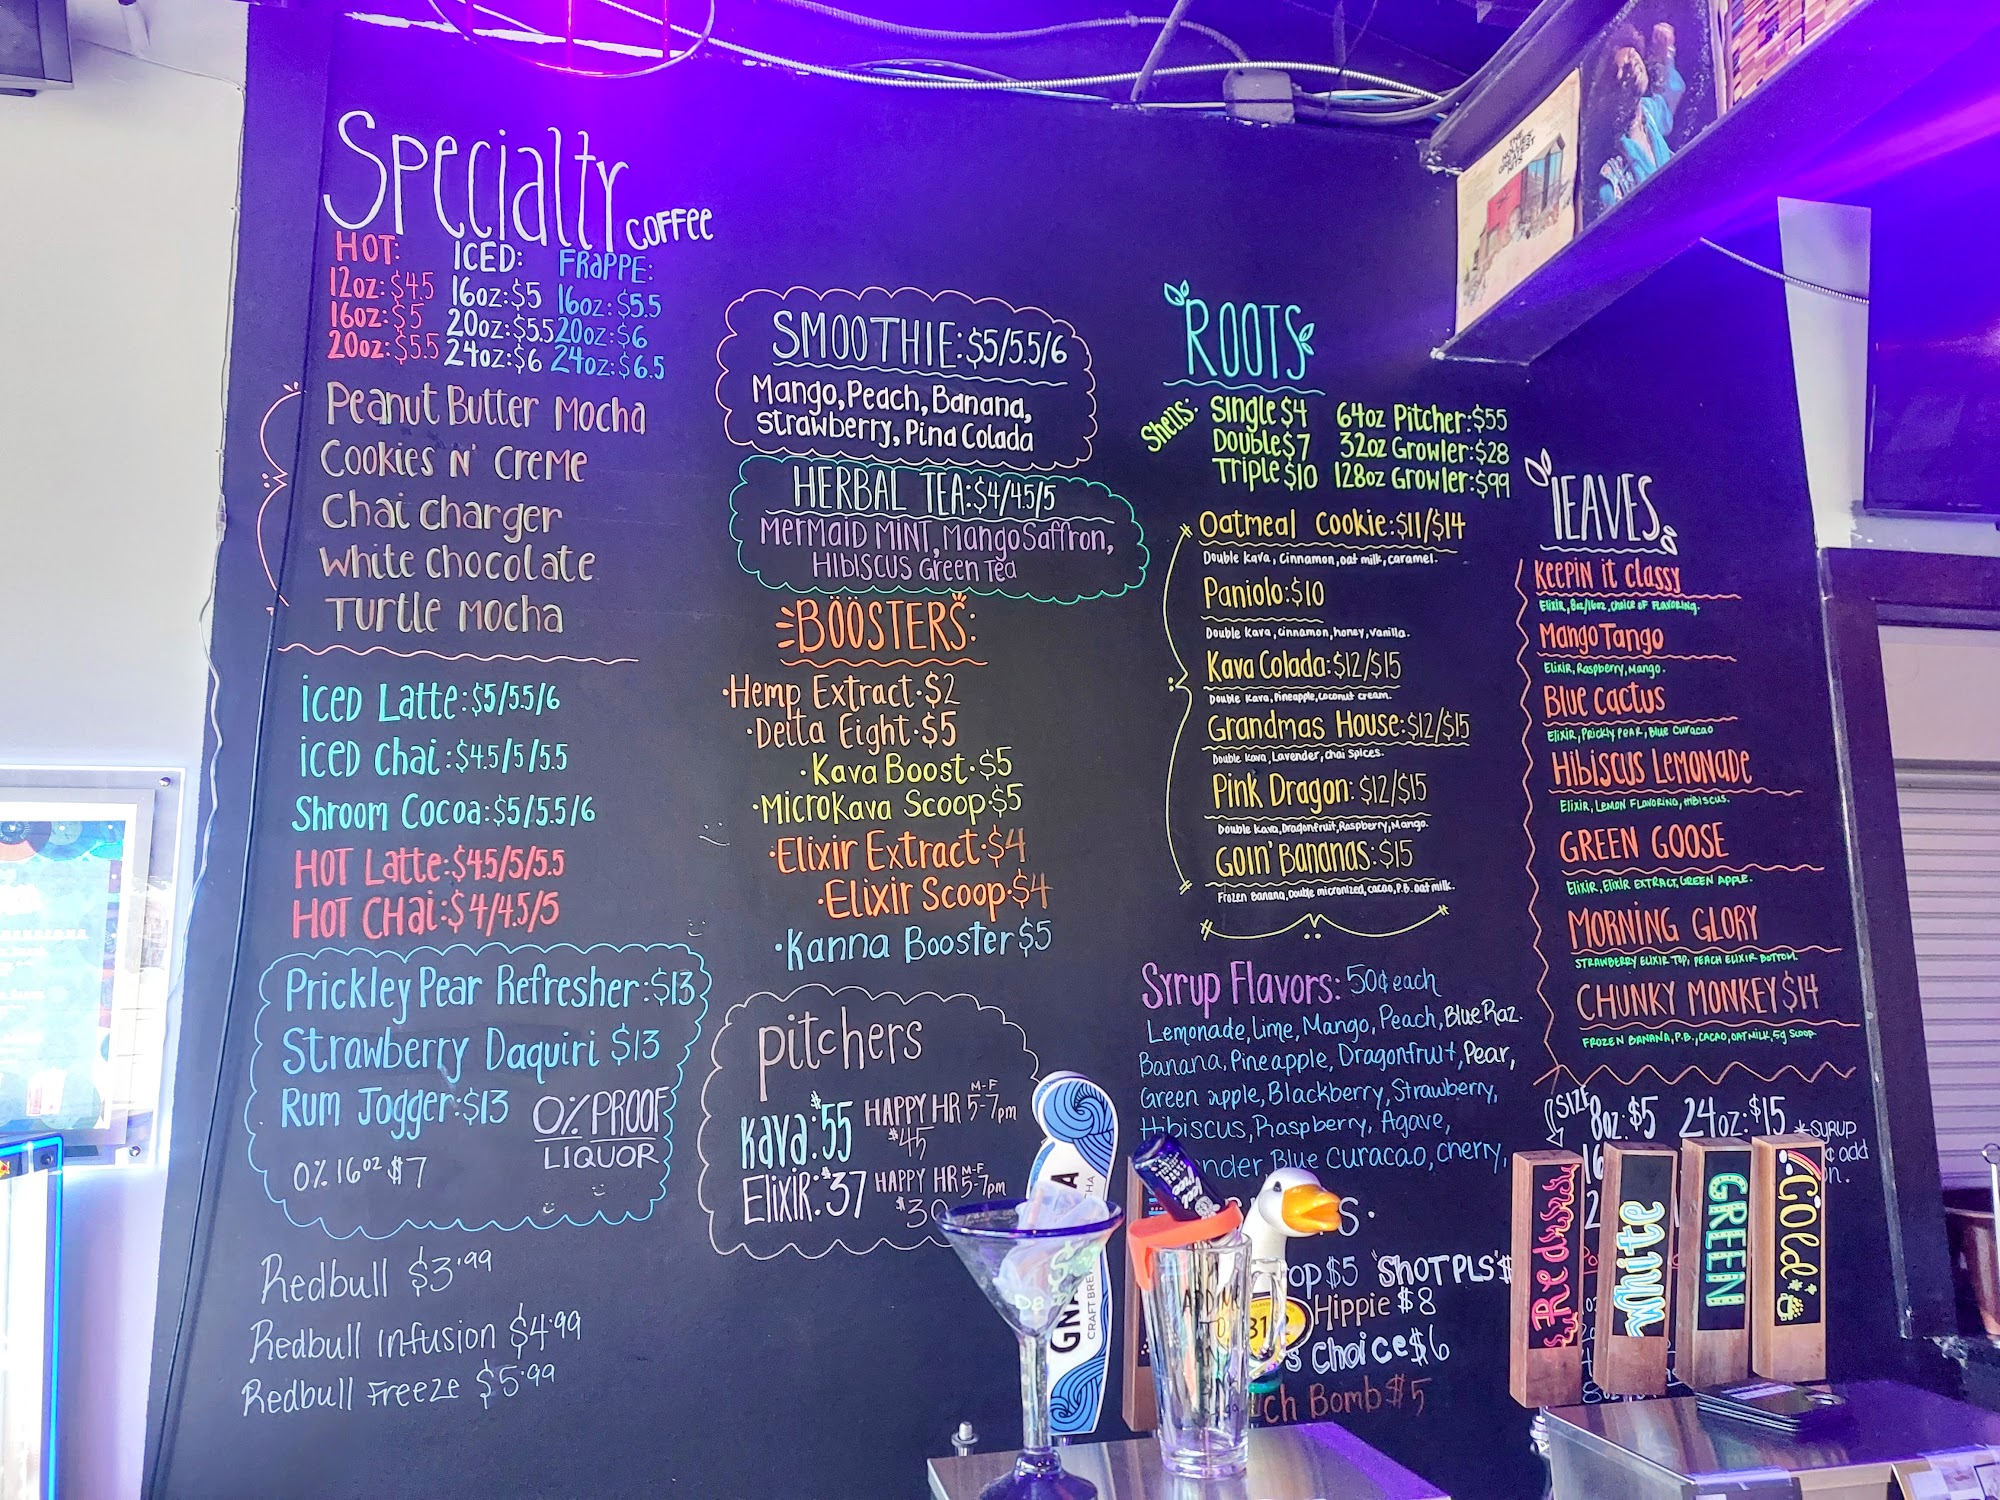 Specialty COFFEE
HOT: ICED: FRAPPE:
12oz: $4.5 16oz: $5 16oz: $5.5
16oz: $5 20oz: $5.5 20oz: $6
20oz: $5.5 24oz: $6 24oz: $6.5
Peanut Butter Mocha
Cookies N' Creme
Chai Charger
White Chocolate
Turtle Mocha
iced Latte: $5/5.5/6
iced chai: $4.5/5/5.5
Shroom Cocoa: $5/5.5/6
HOT Latte: $4.5/5/5.5
HOT CHai: $4/4.5/5
Prickley Pear Refresher: $13
Strawberry Daquiri $13
Rum Jogger: $13
0% PROOF
LIQUOR
0% 16oz $7
Redbull $3.99
Redbull Infusion $4.99
Redbull Freeze $5.99
SMOOTHIE: $5/5.5/6
Mango, Peach, Banana,
Strawberry, Pina Colada
HERBAL TEA: $4/4.5/5
Mermaid Mint, Mango Saffron,
Hibiscus Green Tea
BÖÖSTERS:
·Hemp Extract·$2
·Delta Eight·$5
·Kava Boost·$5
·Microkava Scoop·$5
·Elixir Extract·$4
·Elixir Scoop·$4
·Kanna Booster $5
pitchers
Kava: $55 HAPPY HR M-F 5-7pm
$45
Elixir: $37 HAPPY HR M-F 5-7pm
$30
ROOTS
Shells: Single $4 64oz Pitcher: $55
Double $7 32oz Growler: $28
Triple $10 128oz Growler: $99
Oatmeal Cookie: $11/$14
Double Kava, Cinnamon, oat milk, caramel.
Paniolo: $10
Double Kava, cinnamon, honey, vanilla.
Kava Colada: $12/$15
Double Kava, Pineapple, Coconut cream.
Grandmas House: $12/$15
Double Kava, Lavender, chai Spices.
Pink Dragon: $12/$15
Double Kava, Dragonfruit, Raspberry, Mango.
Goin' Bananas: $15
Frozen Banana, Double micronized, cacao, P.B. oat milk.
Syrup Flavors: 50¢ each
Lemonade, Lime, Mango, Peach, Blue Raz.
Banana, Pineapple, Dragonfruit, Pear,
Green apple, Blackberry, Strawberry,
Hibiscus, Raspberry, Agave,
nder Blue Curacao, cherry,
S.
op $5 "SHOT PLS" $
Hippie $8
s Choice $6
ch Bomb $5
LEAVES
Keepin it classy
Elixir, 8oz/16oz, choice of flavoring.
Mango Tango
Elixir, Raspberry, Mango.
Blue Cactus
Elixir, Prickly Pear, Blue Curacao
Hibiscus Lemonade
Elixir, Lemon Flavoring, Hibiscus.
GREEN GOOSE
Elixir, Elixir Extract, Green Apple.
MORNING GLORY
Strawberry Elixir Top, Peach Elixir Bottom.
CHUNKY MONKEY $14
Frozen Banana, P.B., Cacao, Oat Milk, 5g Scoop.
SIZE 8oz: $5 24oz: $15 *SYRUP
16 ¢ add
2 on.
Red
White
GREEN
Gold
GNA
CRAFT BREW